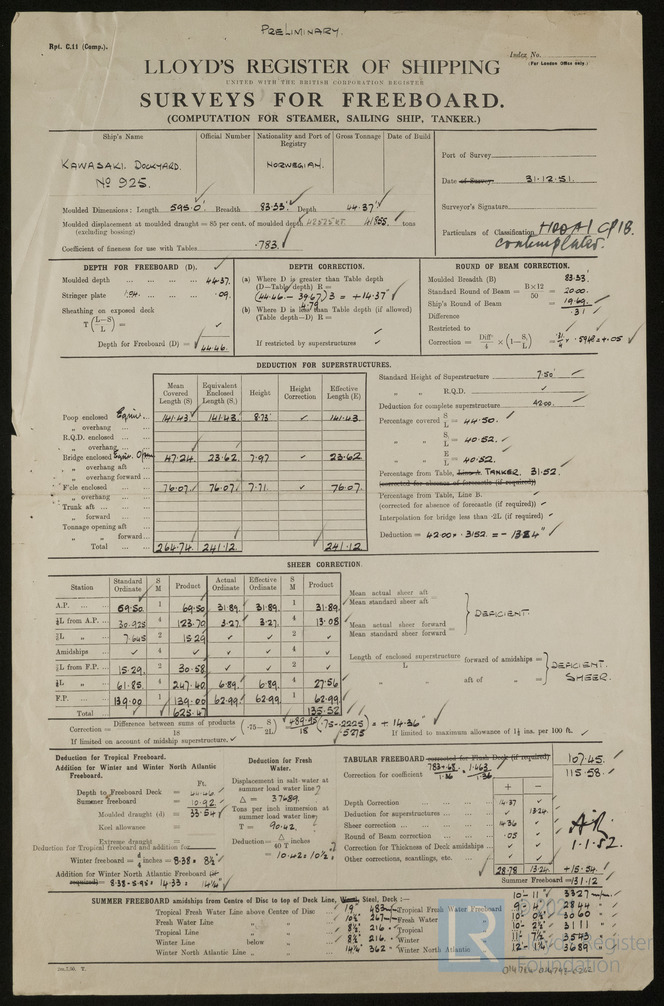 PRELIMINARY.
Rpt. C.11 (Comp.).
Index No.
(For London Office only.)
LLOYD'S REGISTER OF SHIPPING
UNITED WITH THE BRITISH CORPORATION REGISTER
SURVEYS FOR FREEBOARD.
(COMPUTATION FOR STEAMER, SAILING SHIP, TANKER.)
Ship's Name Official Number Nationality and Port of Registry Gross Tonnage Date of Build
KAWASAKI DOCKYARD. No 925. NORWEGIAN.
Port of Survey
Date of Survey 31.12.51.
Surveyor's Signature
Particulars of Classification
contemplated.
Moulded Dimensions: Length 595.0' Breadth 83.33' Depth 44.37'
Moulded displacement at moulded draught = 85 per cent. of moulded depth tons
(excluding bossing)
Coefficient of fineness for use with Tables .783
DEPTH FOR FREEBOARD (D).
Moulded depth 44.37
Stringer plate 1.04 .09
Sheathing on exposed deck
T (L−S/L) =
Depth for Freeboard (D) = 44.46
DEPTH CORRECTION.
(a) Where D is greater than Table depth
(D−Table depth) R =
(44.46 − 39.67) 3 = + 14.37"
4.79
(b) Where D is less than Table depth (if allowed)
(Table depth−D) R =
If restricted by superstructures
ROUND OF BEAM CORRECTION.
Moulded Breadth (B) 83.33
Standard Round of Beam = B×12/50 = 20.00
Ship's Round of Beam = 19.69
Difference .31
Restricted to
Correction = Diff/4 × (1−S₁/L) = .31/4 × .5948 = +.05
DEDUCTION FOR SUPERSTRUCTURES.
Mean Covered Length (S) Equivalent Enclosed Length (S₁) Height Height Correction Effective Length (E)
Poop enclosed Equiv. 141.43 141.43 8.73' 141.43
„ overhang
R.Q.D. enclosed
„ overhang
Bridge enclosed Equiv. Open 47.24 23.62 7.97 23.62
„ overhang aft
„ overhang forward
F'cle enclosed 76.07 76.07 7.71 76.07
„ overhang
Trunk aft
„ forward
Tonnage opening aft
„ „ forward
Total 264.74 241.12 241.12
Standard Height of Superstructure 7.50'
„ „ R.Q.D.
Deduction for complete superstructure 42.00
Percentage covered S/L = 44.50
„ „ S₁/L = 40.52
„ „ E/L = 40.52
Percentage from Table, Line A. TANKER. 31.52
(corrected for absence of forecastle (if required))
Percentage from Table, Line B.
(corrected for absence of forecastle (if required))
Interpolation for bridge less than ·2L (if required)
Deduction = 42.00 × .3152 = − 13.24"
SHEER CORRECTION.
Station Standard Ordinate S M Product Actual Ordinate Effective Ordinate S M Product
A.P. 69.50 1 69.50 31.89 31.89 1 31.89
⅙L from A.P. 30.925 4 123.70 3.27 3.27 4 13.08
⅓L „ 7.645 2 15.29 2
Amidships 4 4
⅓L from F.P. 15.29 2 30.58 2
⅙L „ 61.85 4 247.40 6.89 6.89 4 27.56
F.P. 139.00 1 139.00 62.99 62.99 1 62.99
Total 625.47 135.52
Mean actual sheer aft
Mean standard sheer aft =
Mean actual sheer forward
Mean standard sheer forward =
DEFICIENT.
Length of enclosed superstructure forward of amidships =
L
„ „ aft of „ =
DEFICIENT. SHEER.
Correction = Difference between sums of products/18 (·75−S/2L) = 489.95/18 (.75−.2225) = + 14.36"
.5275
If limited on account of midship superstructure.
If limited to maximum allowance of 1½ ins. per 100 ft.
Deduction for Tropical Freeboard.
Addition for Winter and Winter North Atlantic Freeboard.
Ft.
Depth to Freeboard Deck = 44.46
Summer freeboard = 10.92
Moulded draught (d) = 33.54
Keel allowance =
Extreme draught =
Deduction for Tropical freeboard and addition for
Winter freeboard = d/4 inches = 8.38 = 8½"
Addition for Winter North Atlantic Freeboard (if required) = 8.38 + 5.95 = 14.33 = 14¼"
Deduction for Fresh Water.
Displacement in salt water at summer load water line
Δ = 37689.
Tons per inch immersion at summer load water line
T = 90.42.
Deduction = Δ/40 T inches
= 10.42 = 10½"
TABULAR FREEBOARD corrected for Flush Deck (if required) 107.45
Correction for coefficient .783+.68/1.36 1.463/1.36 115.58
+ −
Depth Correction 14.37
Deduction for superstructures 13.24
Sheer correction 14.36
Round of Beam correction .05
Correction for Thickness of Deck amidships
Other corrections, scantlings, etc.
28.78 13.24 +15.54
Summer Freeboard = 131.12
1.1.52.
SUMMER FREEBOARD amidships from Centre of Disc to top of Deck Line, Wood, Steel, Deck :— 10-11" 3327
Tropical Fresh Water Line above Centre of Disc 19" 483 Tropical Fresh Water Freeboard 2844
Fresh Water Line „ „ 10½" 267 Fresh Water „ 10-0½" 3060
Tropical Line „ „ 8½" 216 Tropical „ 10-2½" 3111
Winter Line below „ 8½" 216 Winter „ 11-7½" 3543
Winter North Atlantic Line „ „ 14¼" 362 Winter North Atlantic „ 12-1¼" 3689
2m.7.50. T.
LR
Lloyd's Register
Foundation